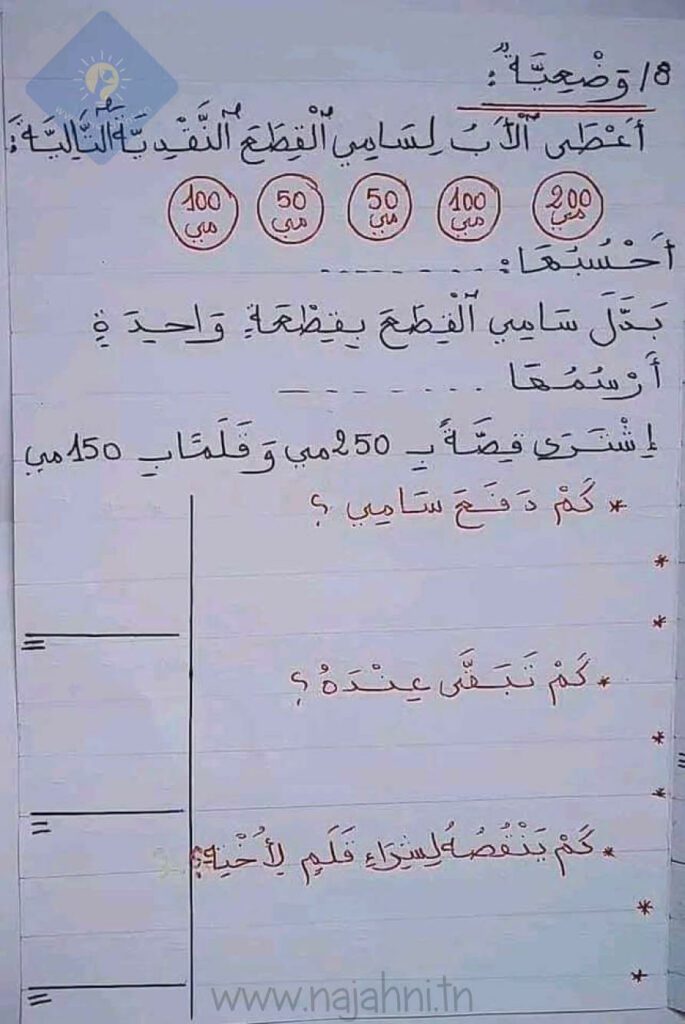 8/ وَضْعِيَّةٌ :
أَعْطَى الْأَبُ لِسَامِي الْقِطَعَ النَّقْدِيَّةَ التَّالِيَةَ :
200 مي 100 مي 50 مي 50 مي 100 مي
أَحْسُبُهَا : . . . . . . . . .
بَدَّلَ سَامِي الْقِطَعَ بِقِطْعَةٍ وَاحِدَةٍ
أَرْسُمُهَا . . . . . . . . . .
إِشْتَرَى قِصَّةً بِ 250 مي وَ قَلَمًا بِ 150 مي
* كَمْ دَفَعَ سَامِي ؟
*
*
=
* كَمْ تَبَقَّى عِنْدَهُ ؟
*
*
=
* كَمْ يَنْقُصُهُ لِشِرَاءِ قَلَمٍ لِأُخْتِهِ ؟
*
*
=
www.najahni.tn